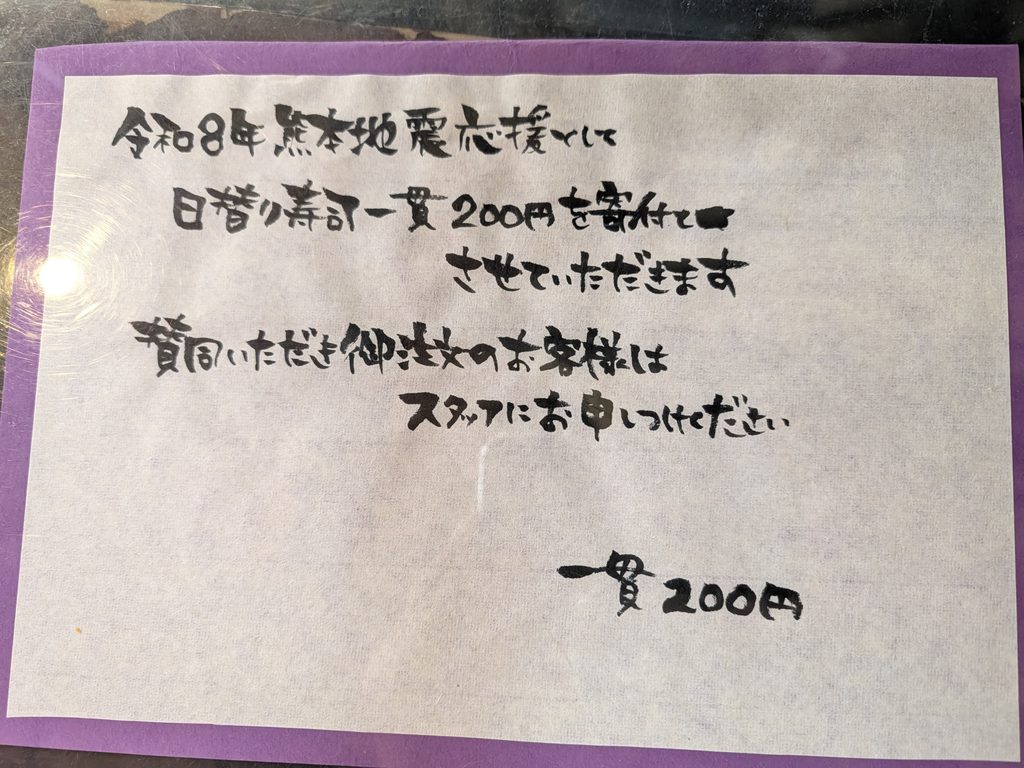 令和8年熊本地震応援として
日替り寿司一貫200円を寄付と
させていただきます
賛同いただき御注文のお客様は
スタッフにお申しつけください
一貫200円